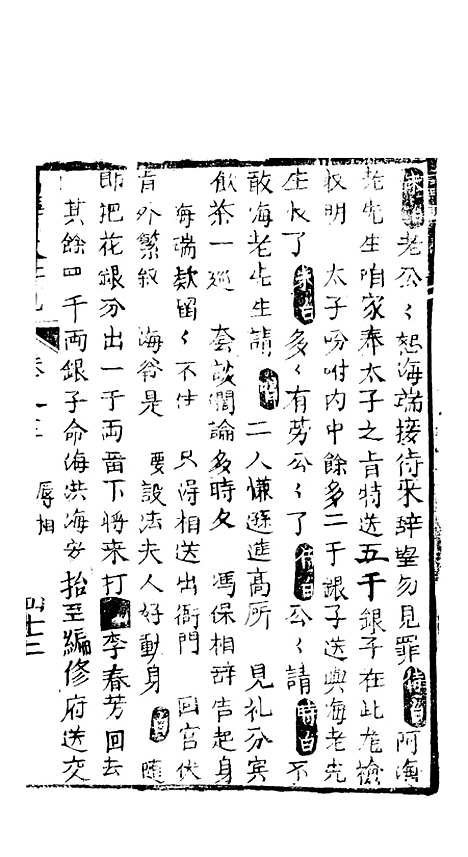 老公〻恕海端接待来辞望勿見罪 阿海
老先生咱家奉太子之旨特送五千銀子在此
收明 太子吩咐内中餘多二千銀子送與海老先
生收了 多〻有劳公〻了 公〻請 不
敢海老先生請 二人慊遜進高所 見礼分宾
飲茶一巡 套談闊論多時久 馮保相辞告起身
海端欵留〻不住 只得相送出衙門 回宮伏
旨外繁敘 海爺是 要設法夫人好動身 随
即把花銀分出一千両畱下將来打 李春芳回去
其餘四千両銀子命海洪海安抬至編修府送交
卷 辱相 四十二